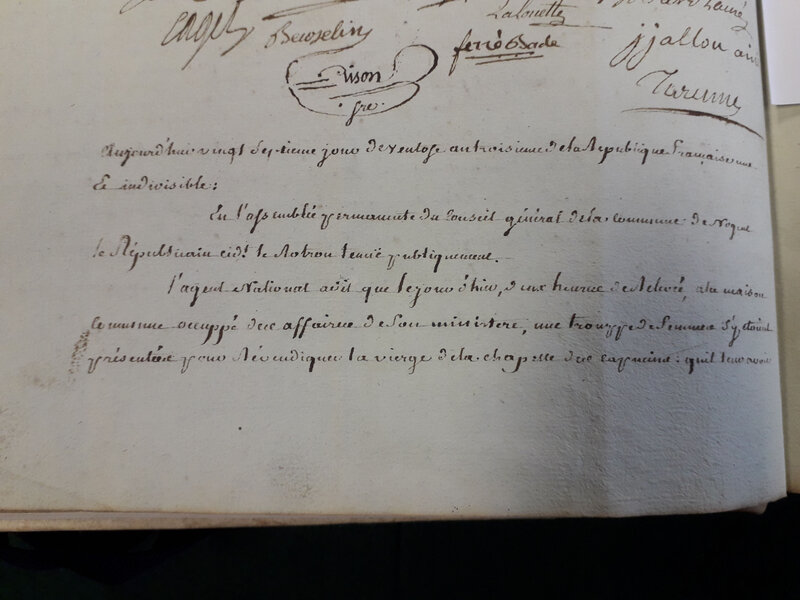 Lalouette
Cagel Beuselin ferré Bade jjallou
Dison Turenne
gre.
Aujourd'hui vingt Septieme jour de ventose an troisieme de la République Française une
Et indivisible:
En l'assemblée permanente du Conseil général de la commune de Nogent
le Républicain cidt. le Rotrou tenue publiquement.
l'agent National a dit que le jour d'hui, d'une heure de relevé, a la maison
Commune occuppé des affaires de Son ministere, une trouppe de femmes S'y etoient
présentées pour Révendiquer la vierge de la chapelle des capucins: qu'il leur avoit